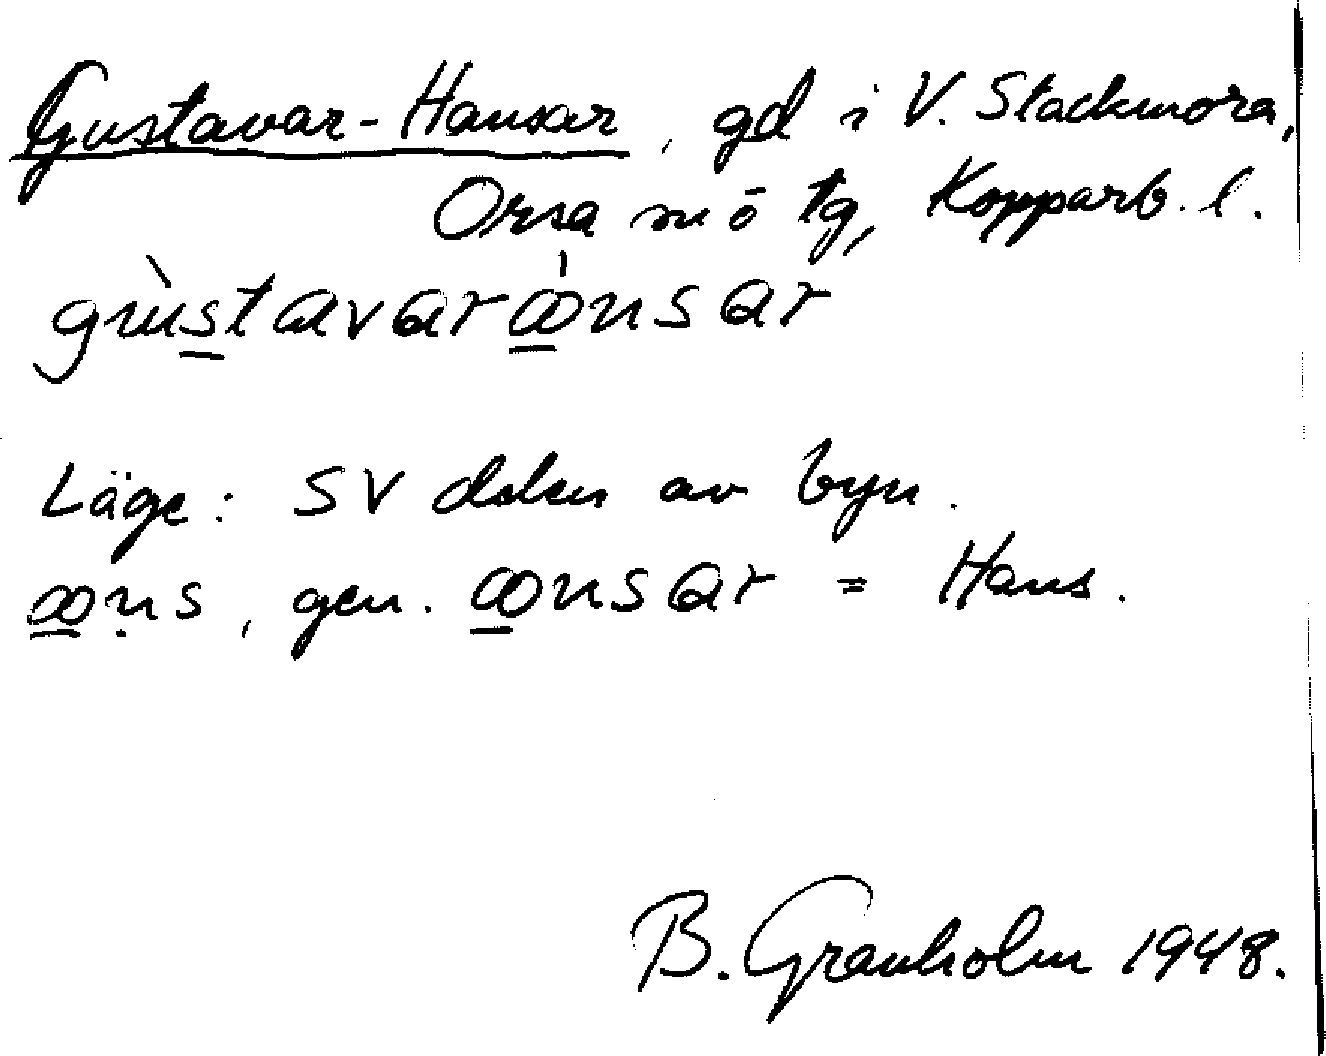 Gustavar-Hansar, gd i V. Stackmora,
Orsa sn ö tg, Kopparb. l.
gùstavarꝏ̀nsar
Läge: SV delen av byn.
ꝏns, gen. ꝏnsar = Hans.
B. Granholm 1948.